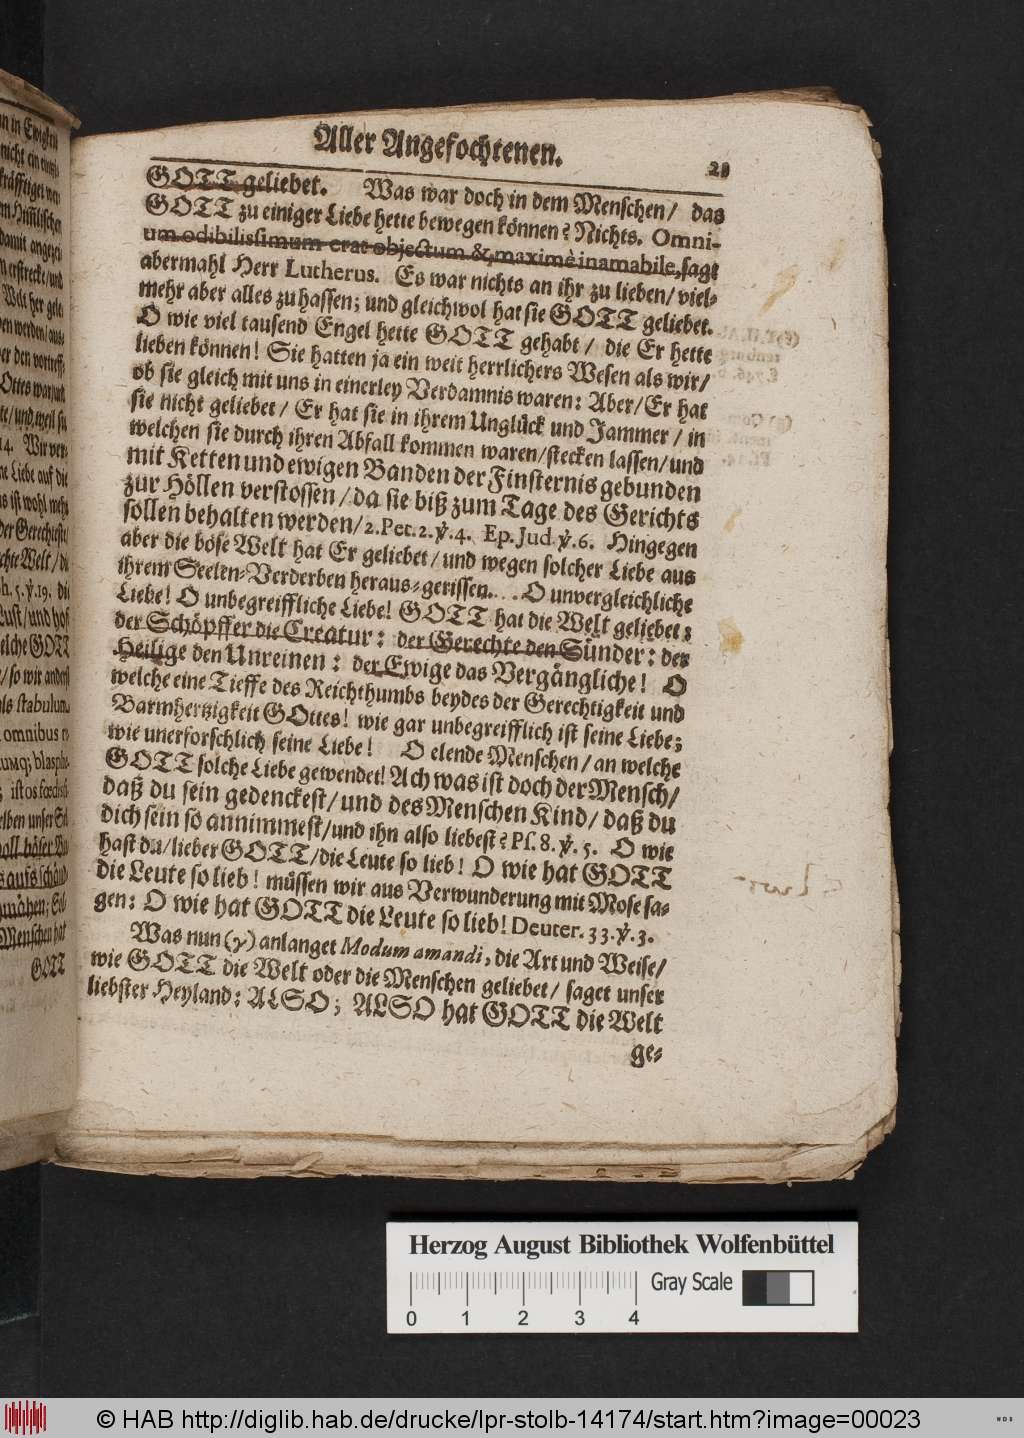 Aller Angefochtenen.
21
GOTT geliebet. Was war doch in dem Menschen/ das
GOTT zu einiger Liebe hette bewegen können? Nichts. Omni-
um odibilissimum erat objectum &, maximè inamabile, sagt
abermahl Herr Lutherus. Es war nichts an ihr zu lieben/ viel-
mehr aber alles zu hassen; und gleichwol hat sie GOTT geliebet.
O wie viel tausend Engel hette GOTT gehabt/ die Er hette
lieben können! Sie hatten ja ein weit herrlichers Wesen als wir/
ob sie gleich mit uns in einerley Verdamnis waren: Aber/ Er hat
sie nicht geliebet/ Er hat sie in ihrem Unglück und Jammer/ in
welchen sie durch ihren Abfall kommen waren/ stecken lassen/ und
mit Ketten und ewigen Banden der Finsternis gebunden
zur Höllen verstossen/ da sie biß zum Tage des Gerichts
sollen behalten werden/ 2. Pet. 2. ℣. 4. Ep. Jud. ℣. 6. Hingegen
aber die böse Welt hat Er geliebet/ und wegen solcher Liebe aus
ihrem Seelen-Verderben heraus-gerissen. O unvergleichliche
Liebe! O unbegreiffliche Liebe! GOTT hat die Welt geliebet;
der Schöpffer die Creatur: der Gerechte den Sünder: der
Heilige den Unreinen: der Ewige das Vergängliche! O
welche eine Tieffe des Reichthumbs beydes der Gerechtigkeit und
Barmhertzigkeit GOttes! wie gar unbegreifflich ist seine Liebe;
wie unerforschlich seine Liebe! O elende Menschen/ an welche
GOTT solche Liebe gewendet! Ach was ist doch der Mensch/
daß du sein gedenckest/ und des Menschen Kind/ daß du
dich sein so annimmest/ und ihn also liebest? Ps. 8. ℣. 5. O wie
hast du/ lieber GOTT/ die Leute so lieb! O wie hat GOTT
die Leute so lieb! müssen wir aus Verwunderung mit Mose sa-
gen: O wie hat GOTT die Leute so lieb! Deuter. 33. ℣. 3.
Was nun (γ) anlanget Modum amandi, die Art und Weise/
wie GOTT die Welt oder die Menschen geliebet/ saget unser
liebster Heyland: ALSO; ALSO hat GOTT die Welt
ge-
Herzog August Bibliothek Wolfenbüttel
Gray Scale
0 1 2 3 4
© HAB http://diglib.hab.de/drucke/lpr-stolb-14174/start.htm?image=00023